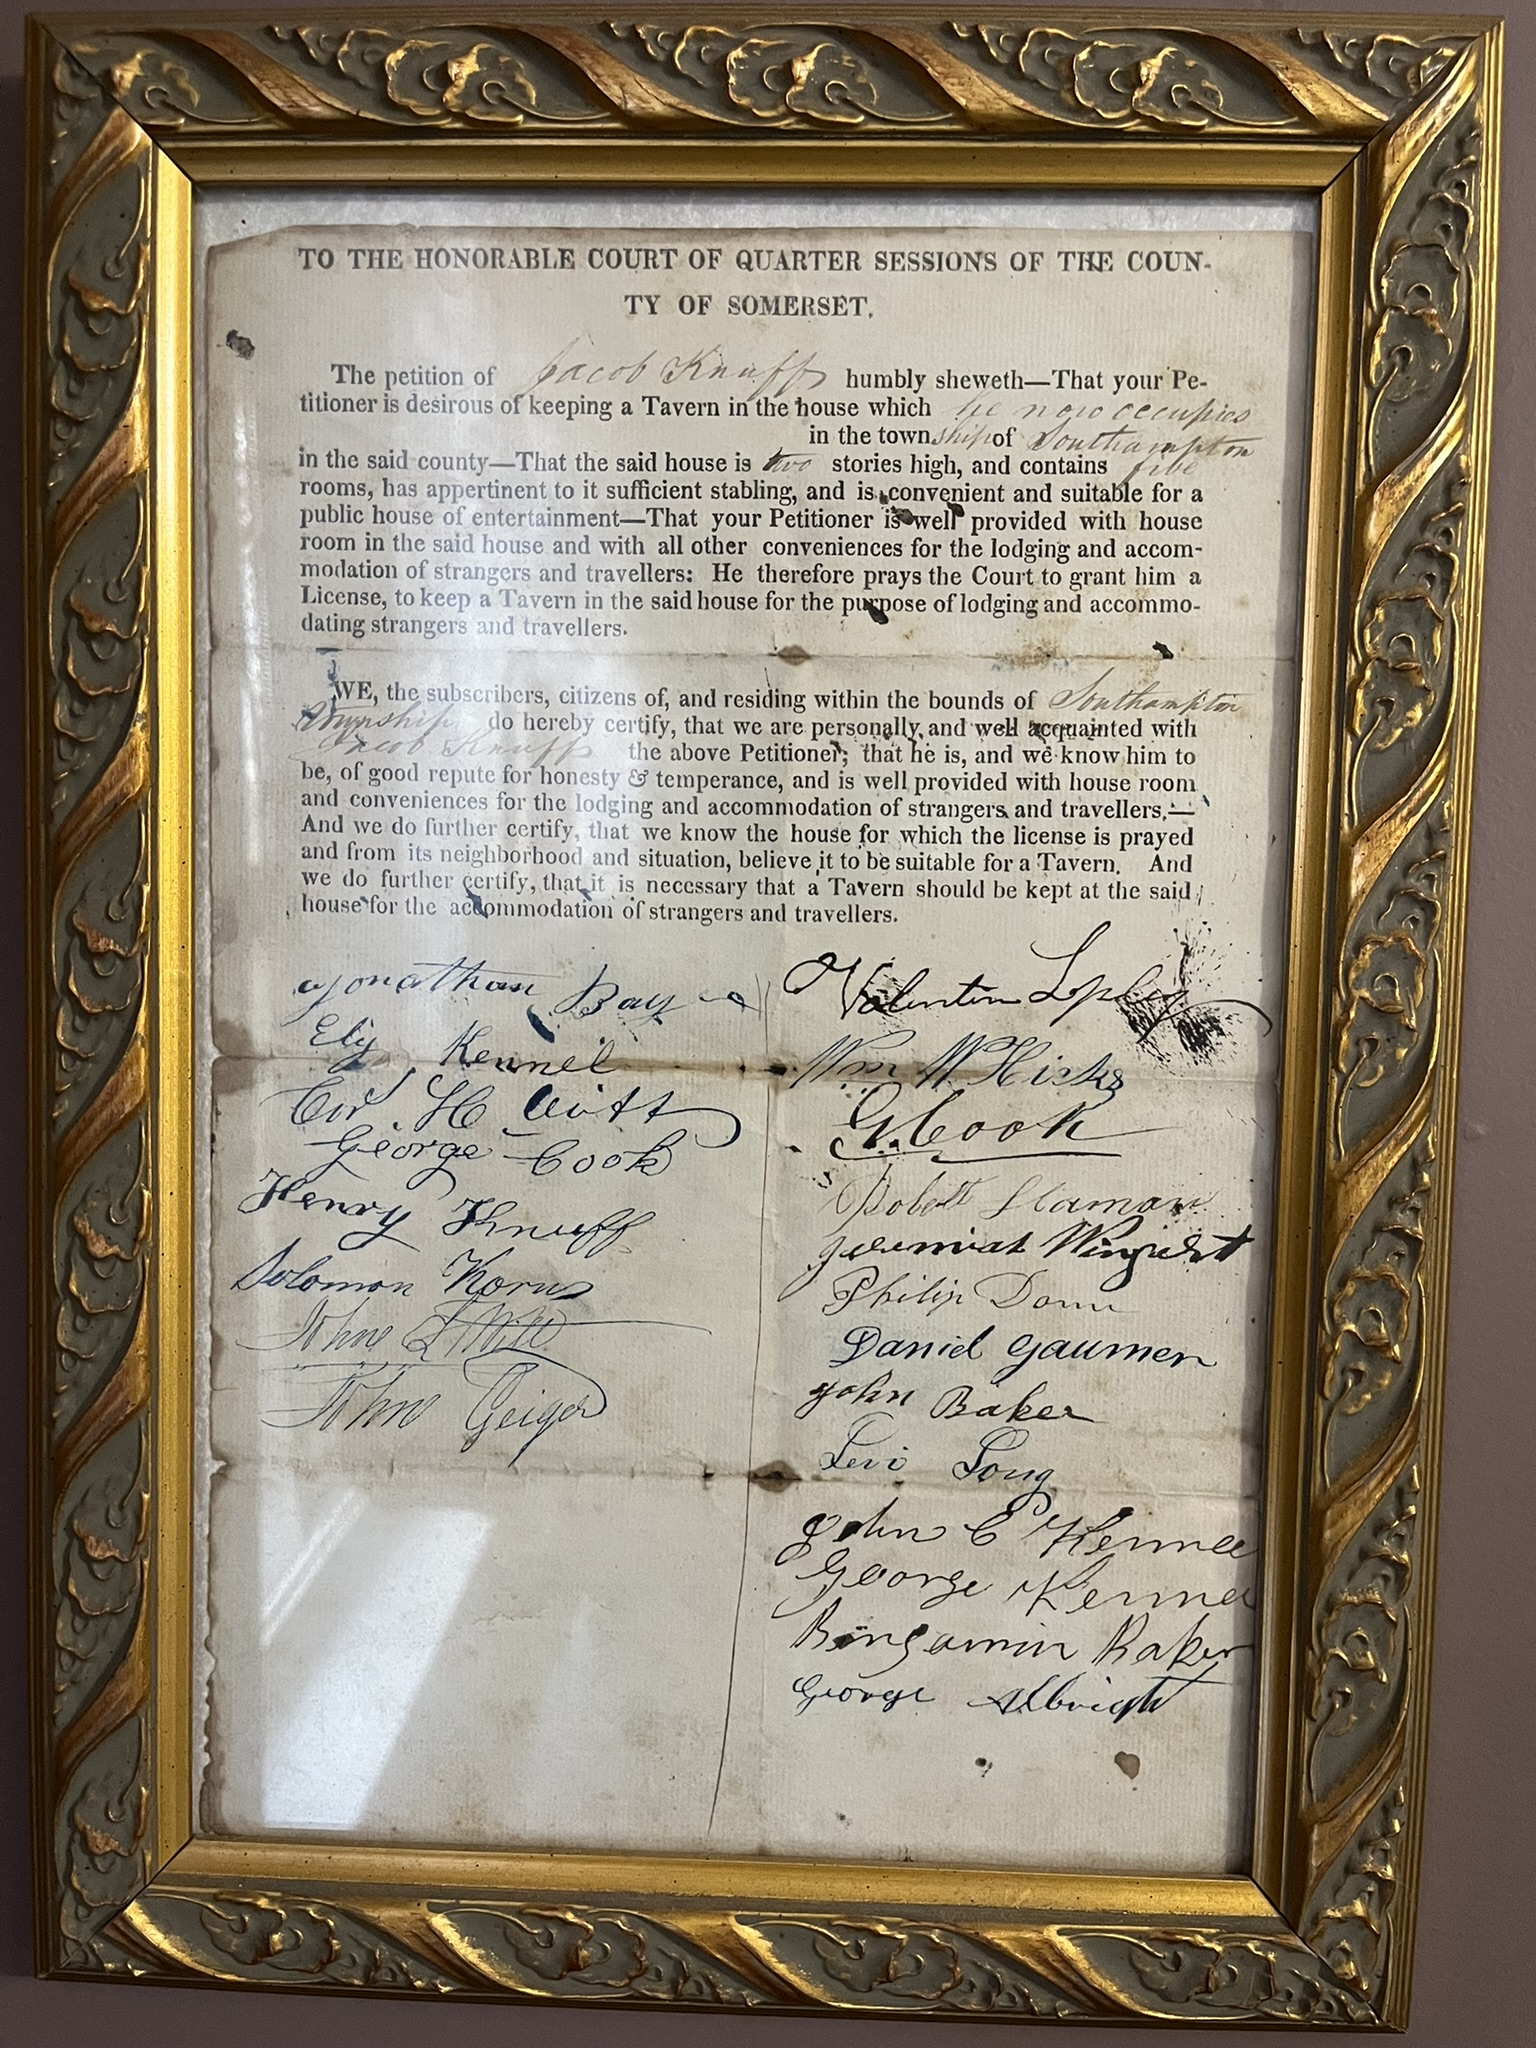 TO THE HONORABLE COURT OF QUARTER SESSIONS OF THE COUN-
TY OF SOMERSET.
The petition of Jacob Knuff humbly sheweth—That your Pe-
titioner is desirous of keeping a Tavern in the house which he now occupies
in the township of Southampton
in the said county—That the said house is two stories high, and contains five
rooms, has appertinent to it sufficient stabling, and is convenient and suitable for a
public house of entertainment—That your Petitioner is well provided with house
room in the said house and with all other conveniences for the lodging and accom-
modation of strangers and travellers: He therefore prays the Court to grant him a
License, to keep a Tavern in the said house for the purpose of lodging and accommo-
dating strangers and travellers.
WE, the subscribers, citizens of, and residing within the bounds of Southampton
Township do hereby certify, that we are personally and well acquainted with
Jacob Knuff the above Petitioner; that he is, and we know him to
be, of good repute for honesty & temperance, and is well provided with house room
and conveniences for the lodging and accommodation of strangers and travellers.—
And we do further certify, that we know the house for which the license is prayed
and from its neighborhood and situation, believe it to be suitable for a Tavern. And
we do further certify, that it is necessary that a Tavern should be kept at the said
house for the accommodation of strangers and travellers.
Jonathan Bay
Ely Kennel
H Witt
George Cook
Henry Knuff
Solomon Korns
John L Witt
John Geiger
Valentin Lepley
Wm W Hicks
G. Cook
Robert
Jeremiah
Philip
Daniel Gaumer
John Baker
Levi Long
John C Kennel
George Kennel
Bengamin Baker
George Albright